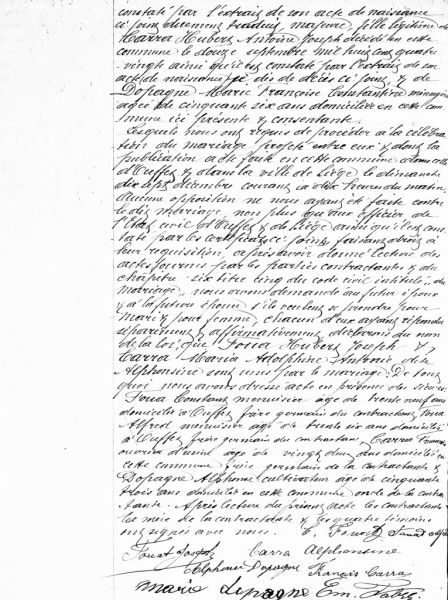 constaté par l'extrait de son acte de naissance
ci joint dûment traduit majeure, fille légitime de
Carra Hubert Antoine Joseph décédé en cette
commune le douze septembre mil huit cent quatre
vingt ainsi qu'il est constaté par l'extrait de son
acte de décès ci joint, & de
Dopagne Marie Françoise Constantine ménagère
agée de cinquante six ans domiciliée en cette com
mune ici présente & consentante.
Lesquels nous ont requis de procéder à la célébra
tion du mariage projeté entre eux & dont la
publication a été faite en cette commune, dans celle
d'Ouffet & dans la ville de Liège le dimanche
dix sept décembre courant à dix heures du matin
Aucune opposition ne nous ayant été faite contre
le dit mariage, non plus qu'aux officiers de
l'Etat civil d'Ouffet & de Liège ainsi qu'il est cons
taté par les certificats ci joints, faisant droit à
leur requisition, après avoir donné lecture des
actes fournis par les parties contractantes & du
chapitre six titre cinq du code civil intitulé, du
mariage, nous avons demandé au futur époux
& à la future épouse s'ils veulent se prendre pour
mari & pour femme, chacun d'eux ayant répondu
séparément & affirmativement déclarons au nom
de la loi, que Hubert Joseph &
Carra Maria Adolphine Antonie dite
Alphonsine sont unis par le mariage. De tout
quoi nous avons dressé acte en présence des sieurs
Constant menuisier âgé de trente neuf ans
domicilié à Ouffet, frère germain du contractant,
Alfred menuisier âgé de trente six ans domicilié
à Ouffet frère germain du contractant, Carra François
ouvrier d'usine âgé de vingt deux ans domicilié en
cette commune frère germain de la contractante &
Dopagne Alphonse cultivateur âgé de cinquante
trois ans domicilié en cette commune oncle de la contrac
tante. Après lecture du présent acte les contractants
la mère de la contractante & les quatre témoins
ont signé avec nous.
Joseph Carra Alphonsine
Alphonse Dopagne François Carra
Marie Dopagne Em.